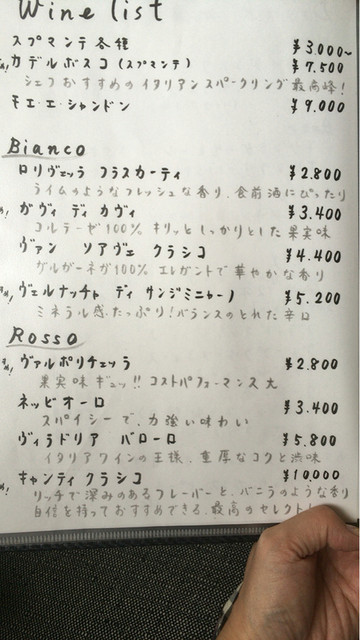 Wine list
スプマンテ各種 ¥3,000~
カデルボスコ(スプマンテ) ¥7,500
シェフおすすめのイタリアンスパークリング最高峰!
モエ・エ・シャンドン ¥9,000
Bianco
ロリヴェッラ フラスカーティ ¥2.800
ライムのようなフレッシュな香り、食前酒にぴったり
ガヴィ ディ ガヴィ ¥3.400
コルテーゼ100% キリッとしっかりとした果実味
ヴァン ソアヴェ クラシコ ¥4.400
ゲルガーネガ100% エレガントで華やかな香り
ヴェルナッチャ ディ サンジミニャーノ ¥5.200
ミネラル感たっぷり!バランスのとれた辛口
Rosso
ヴァルポリチェッラ ¥2.800
果実味ギュッ!! コストパフォーマンス大
ネッビオーロ ¥3.400
スパイシーで、力強い味わい
ヴィラドリア バローロ ¥5.800
イタリアワインの王様、重厚なコクと渋味
キャンティクラシコ ¥10,000
リッチで深みのあるフレーバーと、バニラのような香り
自信を持っておすすめできる、最高のセレクト